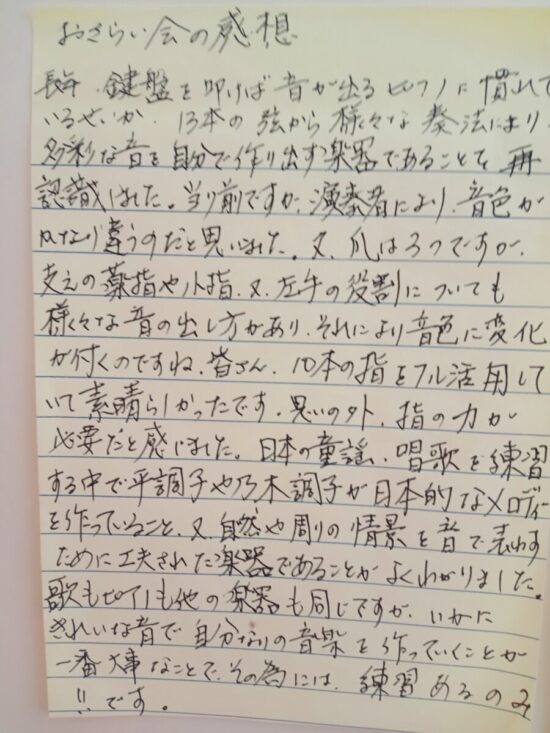 おさらい会の感想
長年、鍵盤を叩けば音が出るピアノに慣れて
いるせいか、13本の弦から様々な奏法により
多彩な音を自分で作り出す楽器であることを再
認識しました。当り前ですが、演奏者により、音色が
かなり違うのだと思いました。又、爪は3つですが、
支えの薬指や小指、又、左手の役割についても
様々な音の出し方があり、それにより音色に変化
が付くのですね。皆さん、10本の指をフル活用して
いて素晴らしかったです。思いの外、指の力が
必要だと感じました。日本の童謡、唱歌を練習
する中で平調子や乃木調子が日本的なメロディー
を作っていること、又、自然や周りの情景を音で表わす
ために工夫された楽器であることがよくわかりました。
歌もピアノも他の楽器も同じですが、いかに
きれいな音で自分なりの音楽を作っていくことが
一番大事なことで、その為には、練習あるのみ
!!です。